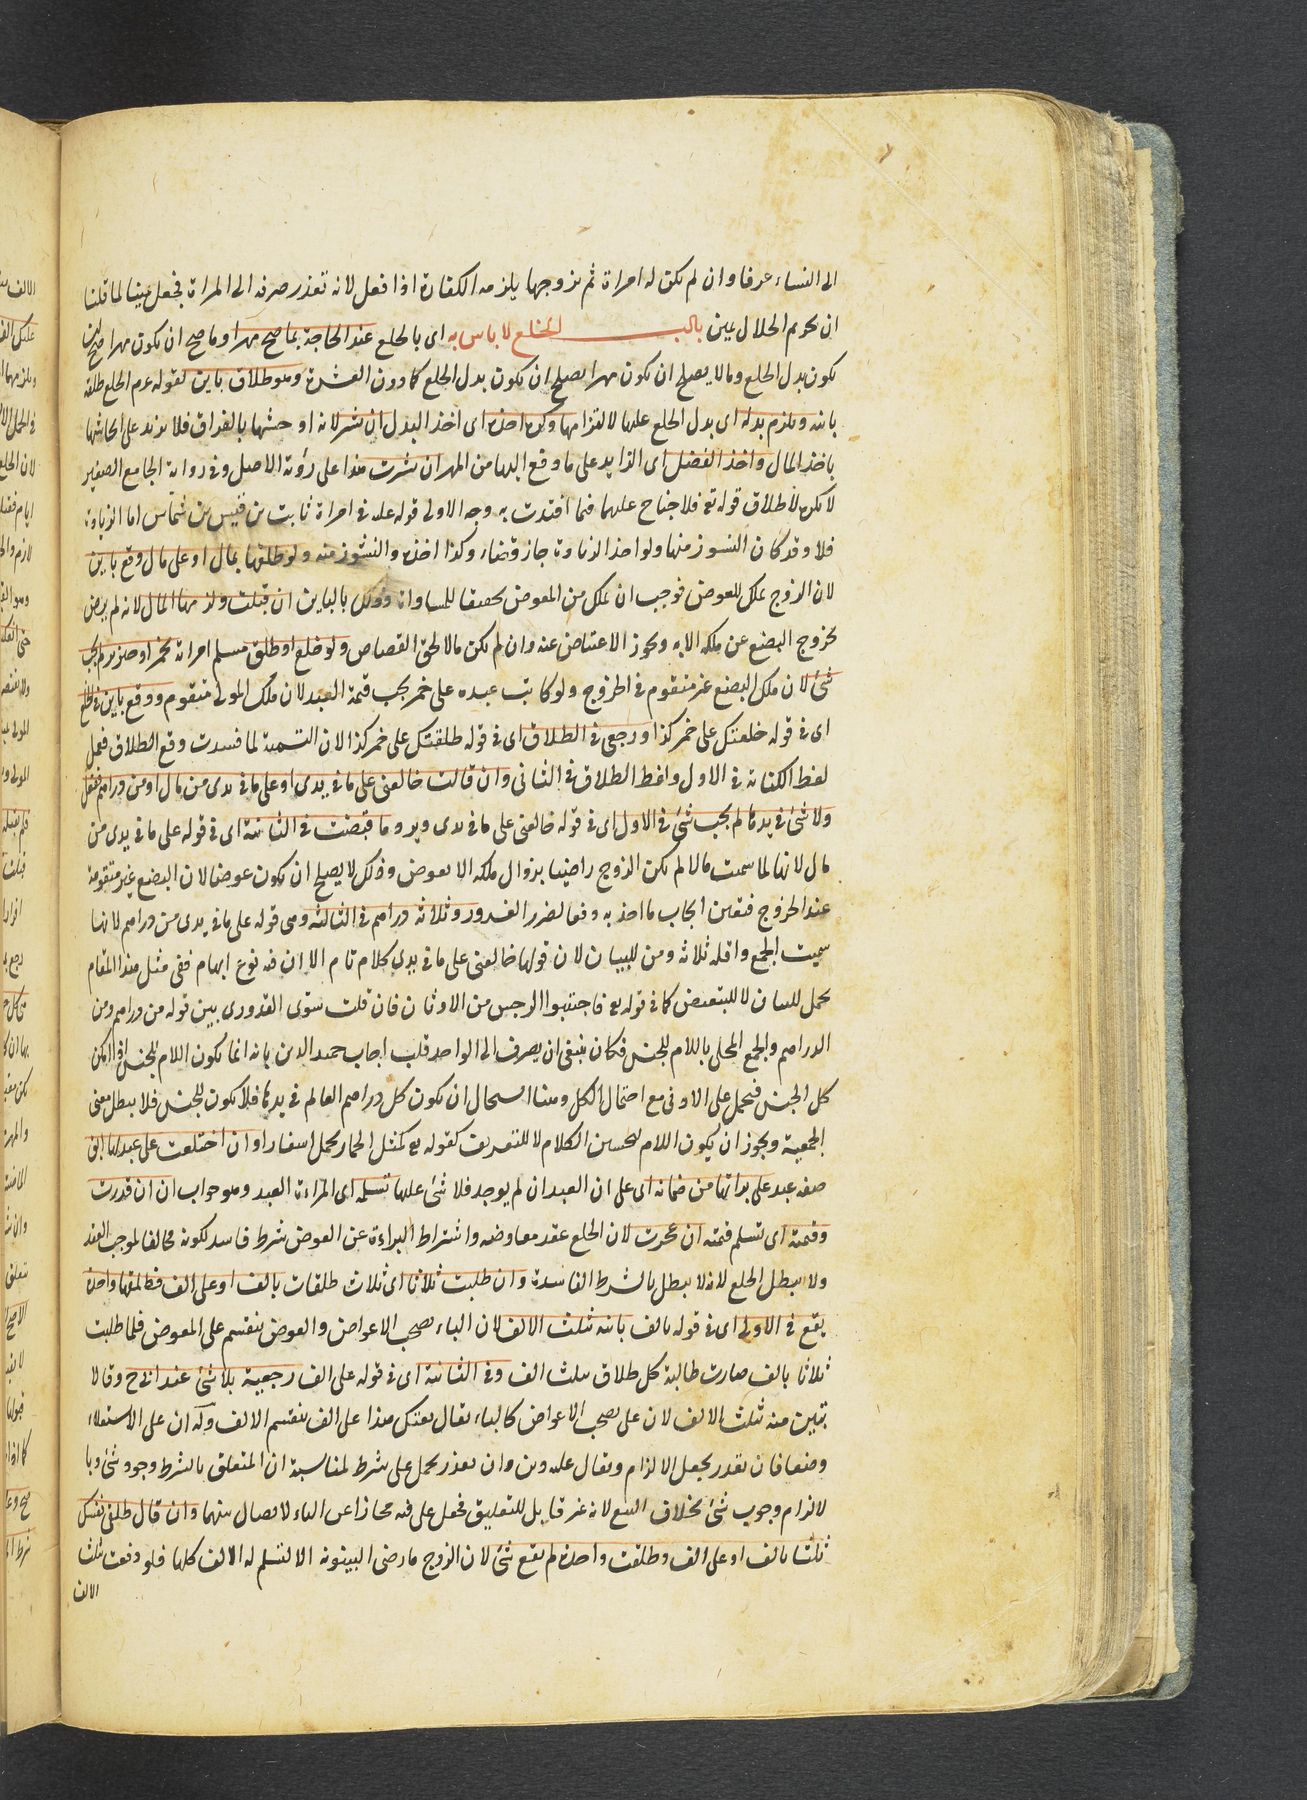 الى النساء عرفا وان لم تكن له امراة ثم تزوجها يلزمه الكفارة اذا فعل لانه تعذر صرفه الى المراة فجعل يمينا لما قلنا
ان تحريم الحلال يمين باب الخلع لا باس به اى بالخلع عند الحاجة بما صح مهرا وما صح ان يكون مهرا صح ان
يكون بدل الخلع وما لا يصلح ان يكون مهرا يصلح ان يكون بدل الخلع كما دون العشرة وهو طلاق باين لقوله عم الخلع طلقة
باينة ويلزم بدله اى بدل الخلع عليها لالتزامها وكره اخذه اى اخذ البدل ان نشز لانه اوحشها بالفراق فلا يزيد على ايحاشها
باخذ المال واخذ الفضل اى الزايد على ما دفع اليها من المهر ان نشزت هذا على رواية الاصل وفى رواية الجامع الصغير
لا يكره لاطلاق قوله تع فلا جناح عليهما فيما افتدت به وجه الاولى قوله عم فى امراة ثابت بن قيس بن شماس اما الزيادة
فلا وقد كان النشوز منها ولو اخذ الزيادة جاز قضاء وكذا اخذه والنشوز منه ولو طلقها بمال او على مال وقع باين
لان الزوج يملك العوض فوجب ان يملك من المعوض تحقيقا للمساواة وذلك بالباين ان قبلت ولزمها المال لانه لم يرض
بخروج البضع عن ملكه الا به ويجوز الاعتياض عنه وان لم يكن مالا لحق القصاص ولو خلع او طلق مسلم امراة بخمر او خنزير لم يجب
شئ لان ملك البضع غير متقوم فى الخروج ولو كاتب عبده على خمر يجب قيمة العبد لان ملك المولى متقوم ووقع باين فى الخلع
اى فى قوله خلعتك على خمر كذا ورجعى فى الطلاق اى فى قوله طلقتك على خمر كذا لان التسمية لما فسدت وقع الطلاق فيعمل
لفظ الكناية فى الاول ولفظ الطلاق فى الثانى وان قالت خالعنى على ما فى يدى او على ما فى يدى من مال او من دراهم ففعل
ولا شئ فى يدها لم يجب شئ فى الاول اى فى قوله خالعنى على ما فى يدى ويرد ما قبضت فى الثانية اى فى قوله على ما فى يدى من
مال لانها لما سمت مالا لم يكن الزوج راضيا بزوال ملكه الا بعوض وذلك لا يصلح ان يكون عوضا لان البضع غير متقومة
عند الخروج فتعين ايجاب ما اخذ به دفعا لضرر الغرور وثلاثة دراهم فى الثالثة وهى قوله على ما فى يدى من دراهم لانها
سميت الجمع واقله ثلاثة ومن للبيان لان قولها خالعنى على ما فى يدى كلام تام الا ان فيه نوع ابهام ففى مثل هذا المقام
يحمل للبيان لا للتبعيض كما فى قوله تع فاجتنبوا الرجس من الاوثان فان قلت سوى القدورى بين قوله من دراهم ومن
الدراهم والجمع المحلى باللام للجنس فكان ينبغى ان يصرف الى الواحد قلت اجاب حميد الدين بانه انما يكون اللام للجنس اذا امكن
كل الجنس فيحمل على الادنى مع احتمال الكل وهنا استحال ان يكون كل دراهم العالم فى يدها فلا يكون للجنس فلا يبطل معنى
الجمعية ويجوز ان يكون اللام لتحسين الكلام لا للتعريف كقوله تع كمثل الحمار يحمل اسفارا وان اختلعت على عبد لها ابق
صفة عبد على براتها من ضمانه اى على ان العبد ان لم يوجد فلا شئ عليها تسلمه اى المراة العبد وهو جواب ان ان قدرت
وقيمته اى تسلم قيمته ان عجزت لان الخلع عقد معاوضة واشتراط البراءة عن العوض شرط فاسد لكونه مخالفا لموجب العقد
ولا يبطل الخلع لانه لا يبطل بالشرط الفاسدة وان طلبت ثلاثا اى ثلاث طلقات بالف او على الف فطلقها واحدة
يقع فى الاولى اى فى قوله بالف باينة بثلث الالف لان الباء تصحب الاعواض والعوض ينقسم على المعوض فلما طلبت
ثلاثا بالف صارت طالبة كل طلاق بثلث الف وفى الثانية اى فى قوله على الف رجعية بلا شئ عند ابى ح وقالا
تبين منه بثلث الالف لان على تصحب الاعواض كالباء يقال بعتك هذا على الف فينقسم الالف وله ان على للاستعلاء
وضعا فان تعذر يجعل الالزام ويقال عليه دين وان تعذر يحمل على شرط لمناسبة ان المتعلق بالشرط وجود شئ وبا
لالزام وجوب شئ بخلاف البيع لانه غير قابل للتعليق فجعل على فيه مجازا عن الباء لاتصال بينهما وان قال طلقى نفسك
ثلثا بالف او على الف وطلقت واحدة لم يقع شئ لان الزوج ما رضى البينونة الا لتسلم له الالف كلها فلو وقعت بثلث
الالف